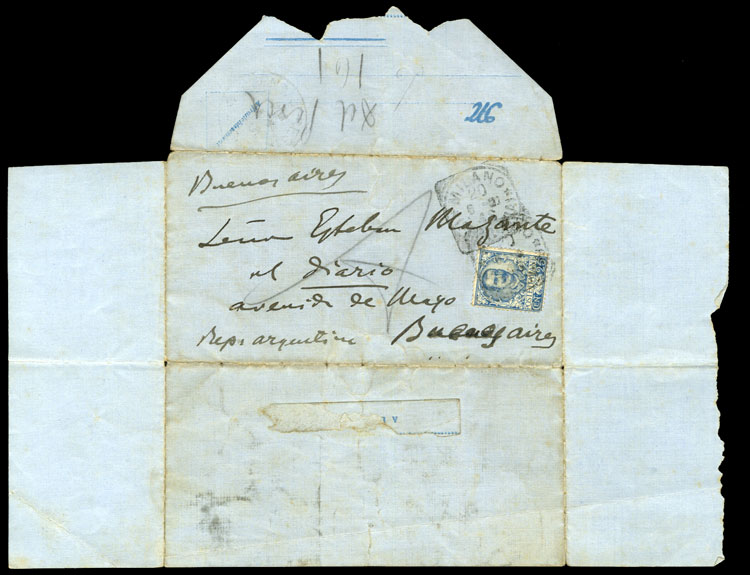 161
Buenos aires
MILANO
Señor Esteban Mazante
el Diario
avenida de Mayo
Rep. argentina Buenos aires
A L